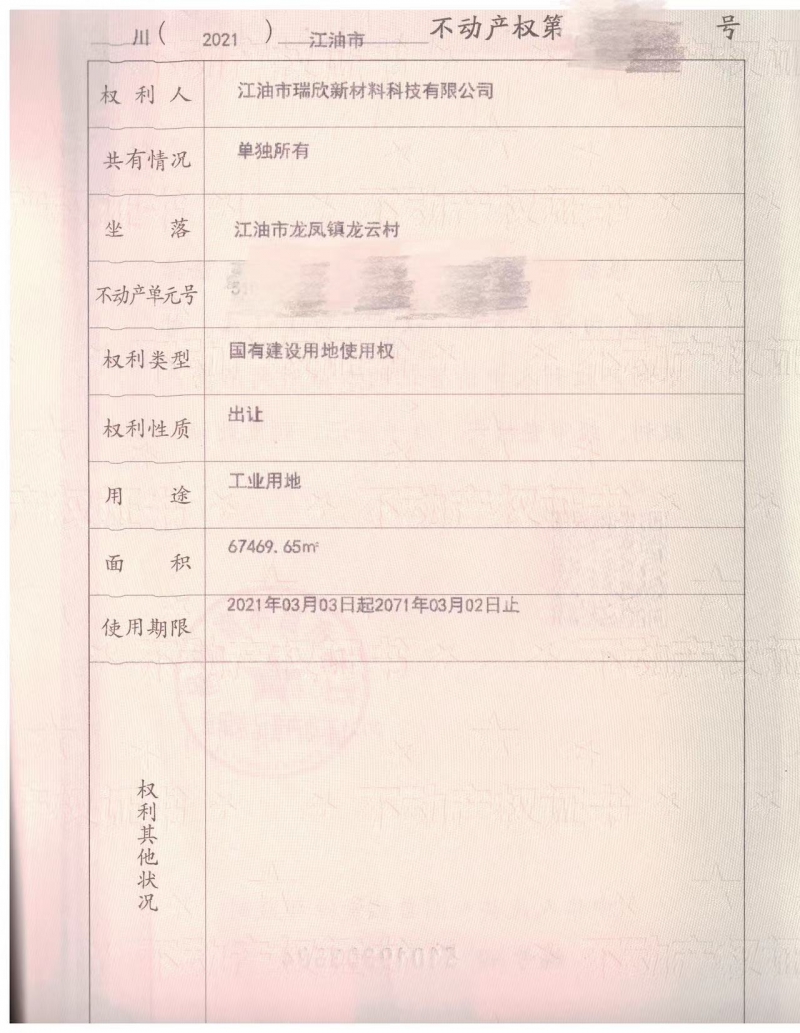 川( 2021 ) 江油市 不动产权第 号
权利人 江油市瑞欣新材料科技有限公司
共有情况 单独所有
坐落 江油市龙凤镇龙云村
不动产单元号
权利类型 国有建设用地使用权
权利性质 出让
用途 工业用地
面积 67469.65㎡
使用期限 2021年03月03日起2071年03月02日止
权利其他状况